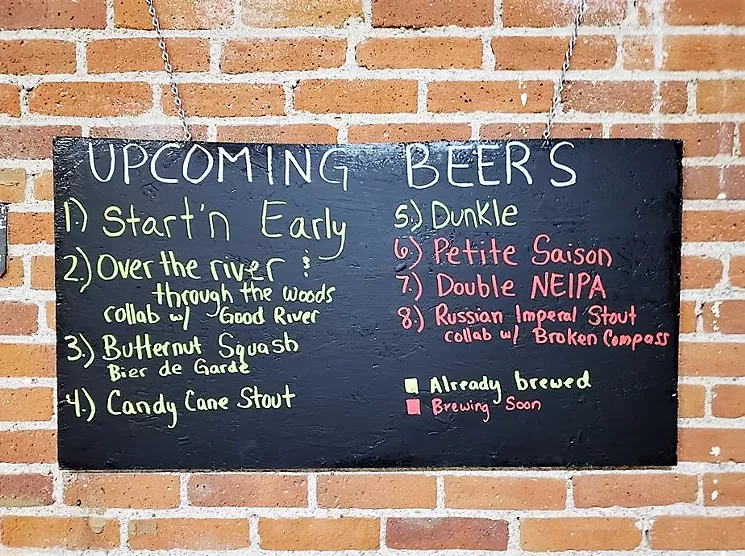 UPCOMING BEERS
1) Start'n Early
2.) Over the river &
through the woods
collab w/ Good River
3.) Butternut Squash
Bier de Garde
4.) Candy Cane Stout
5.) Dunkle
6.) Petite Saison
7.) Double NEIPA
8.) Russian Imperal Stout
collab w/ Broken Compass
Already brewed
Brewing Soon